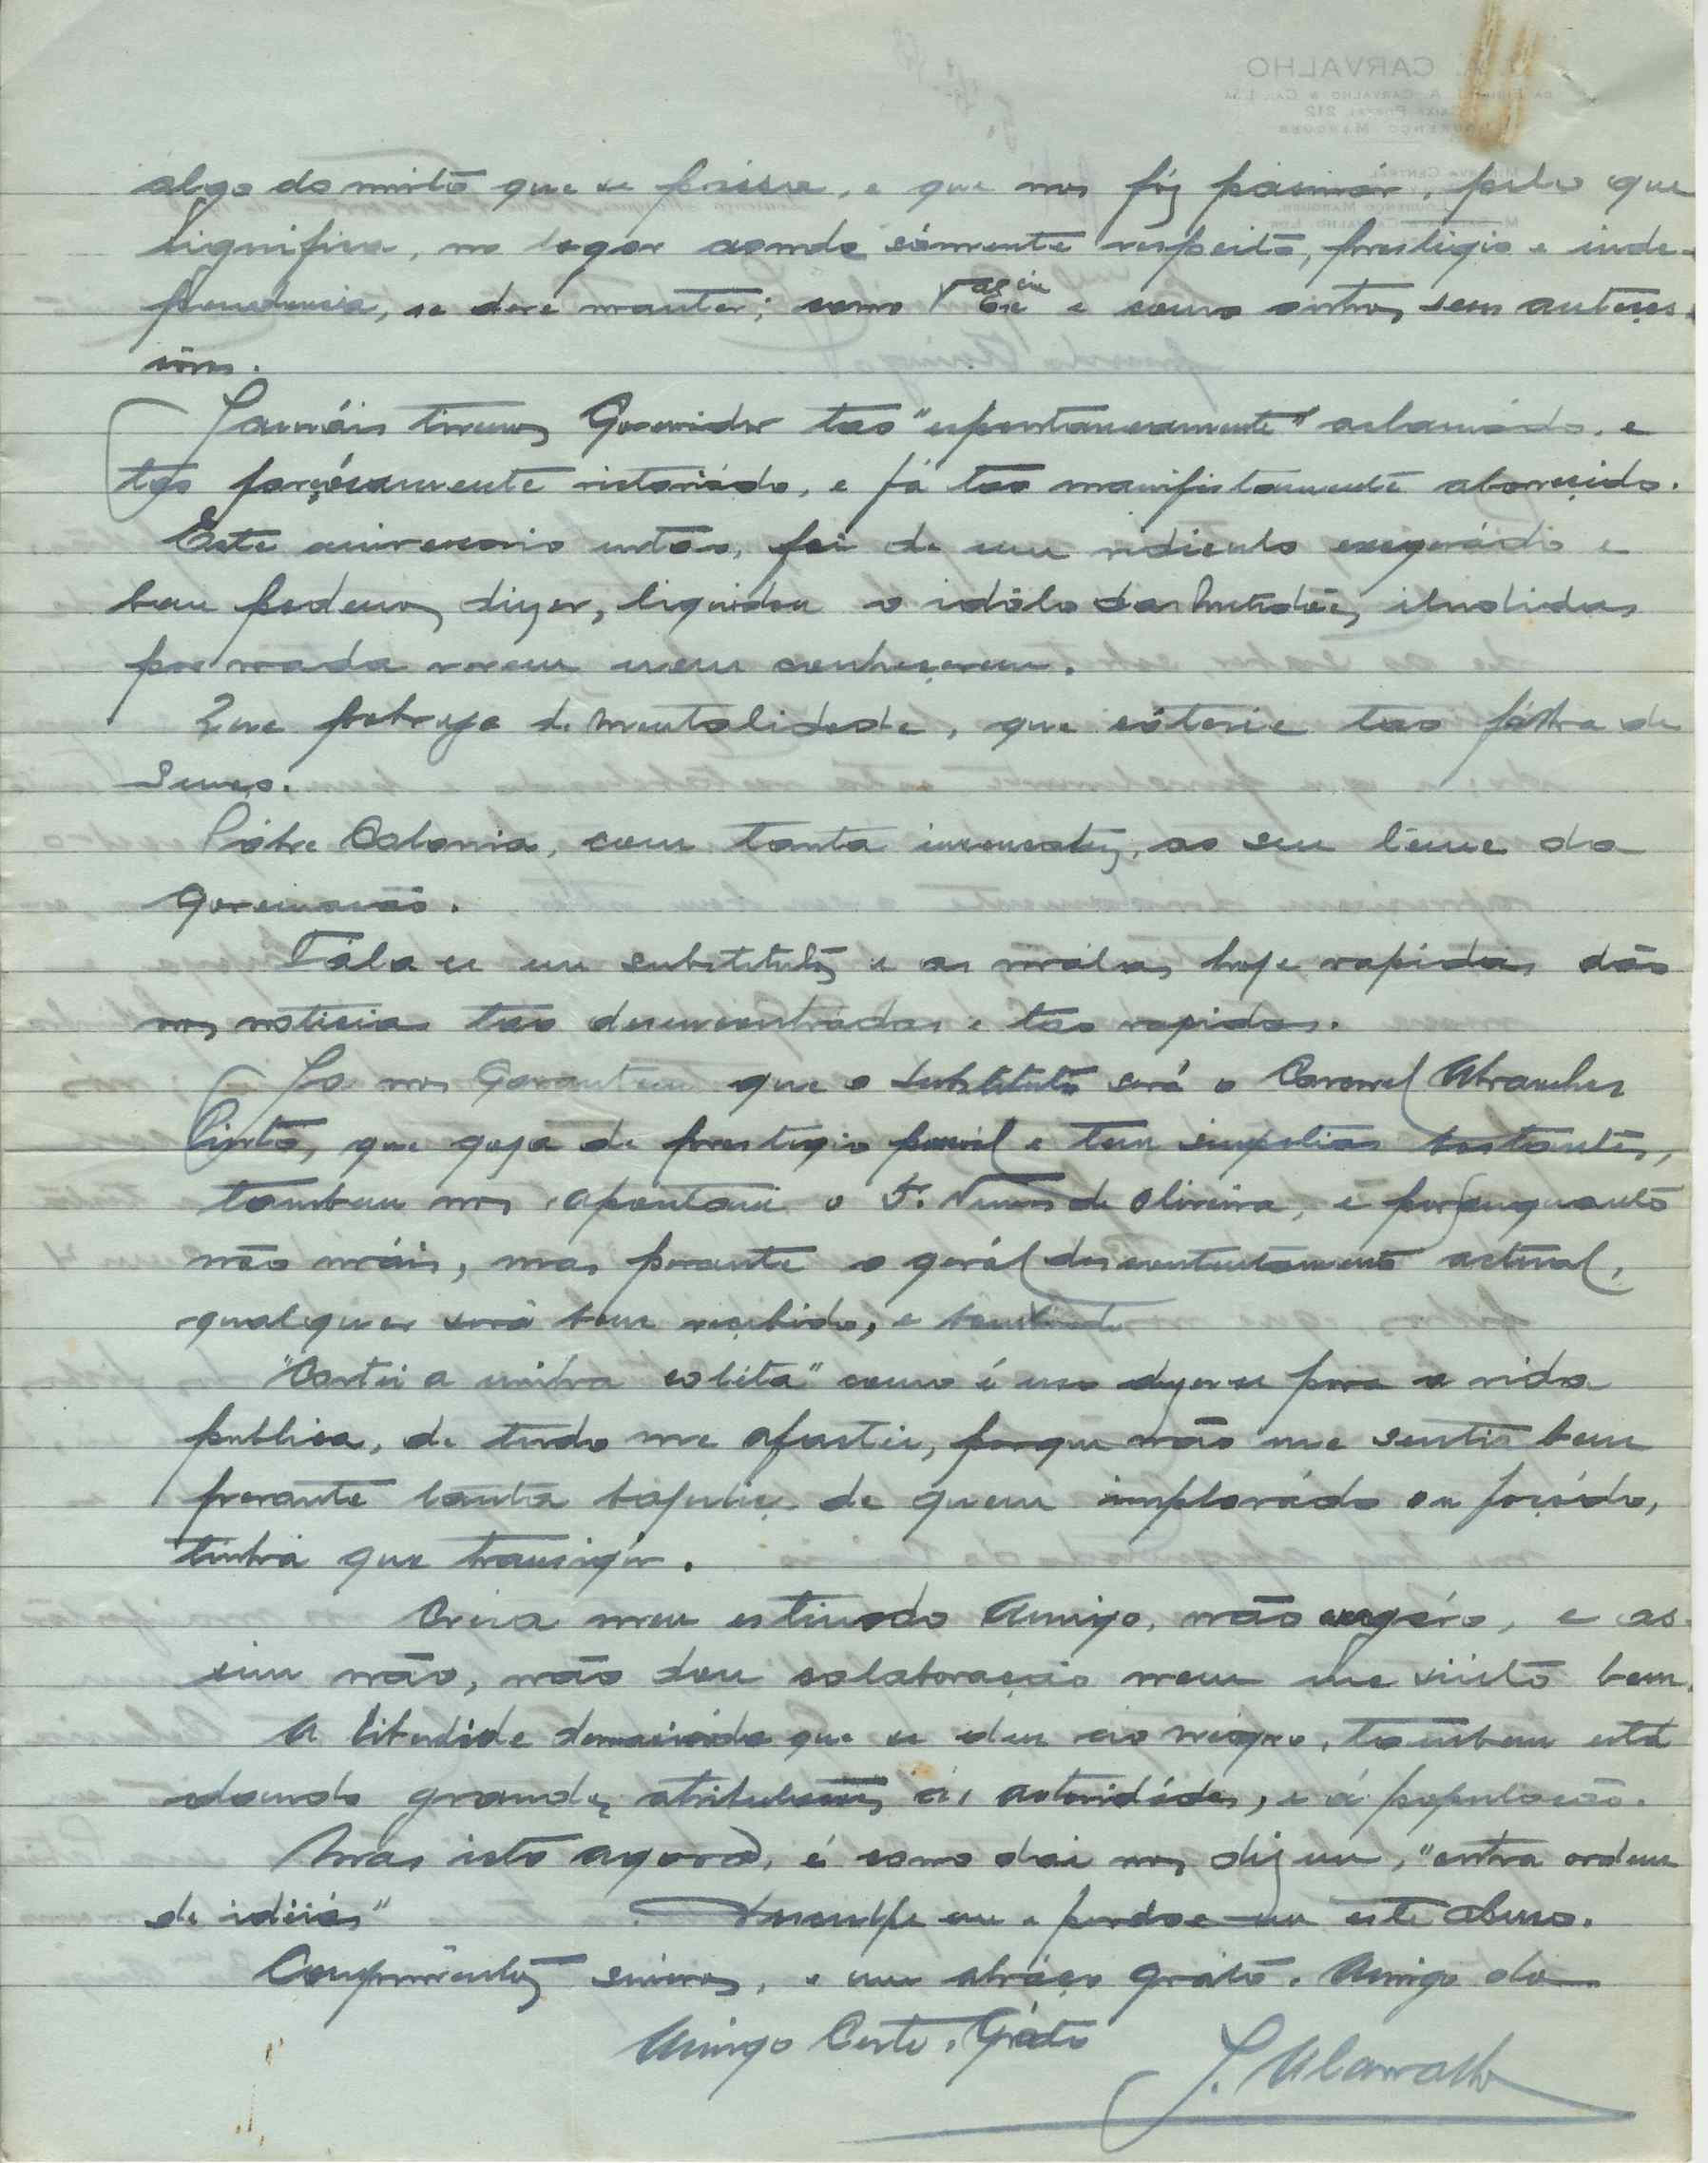 algo do muito que se passa, e que nos fáz pasmár, pelo que
significa, no logar aonde sómente respeito, prestigio e inde-
pendencia, se deve manter; como V. Exª e como outros seus anteces-
sôres.
Jamáis tivemos Governador tao "espontaneamente" aclamádo, e
tao forçósamente vitoriádo, e já tao manifestamente aborrecido.
Este aniversario entao, foi de um ridiculo exagerádo e
bem podemos dizer, liquidou o idólo das multidões, iludidas
por nada verem nem conhecerem.
Que pobreza de mentalidade, que tao fálha de
senso.
Póbre Colonia, com tanta insensatez, ao seu leme da
Governação.
Fála se em substitutos e as hoje rapidas dão
nos noticias tao desencontradas e tao rapidas.
Ja nos Garantem que o substituto será o Coronel Abranches
Pinto, que goza de prestigio e tem simpatias bastantes,
tambem nos apontam o F. Nunes de Oliveira, e por enquanto
não máis, mas perante o gerál descontentamento actual,
qualquer será bem recebido, e
"Cortei a minha colêta" como é uso dizer se para a vida
publica, de tudo me afastei, porque não me sentia bem
perante tanta de quem implorádo ou forçádo,
tinha que transigir.
Creia meu estimado Amigo, não exagéro, e as-
sim não, não dou colaboração nem me sinto bem.
A liberdade demasiáda que se deu ao negro, tambem está
dando grandes atribulações ás autoridádes, e á população.
Mas isto agora, é como dai nos dizem, "outra ordem
de idéias" Desculpe me e perdoe me este abuso.
Comprimentos sinceros, e um abráço gráto. Amigo do
Amigo Certo e Gráto
J. A. Carvalho
CARVALHO
Lourenço Marques